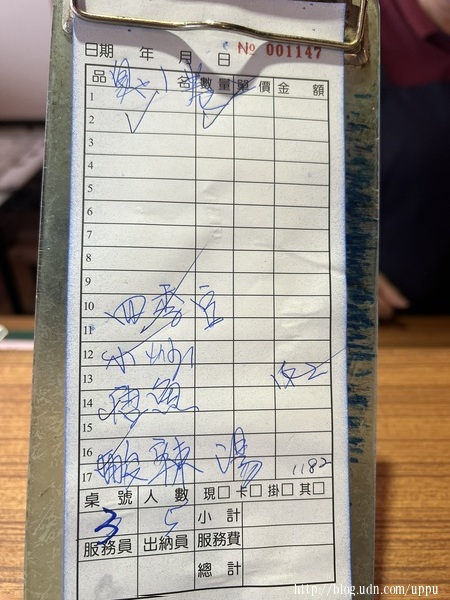 日期 年 月 日 № 001147
品名 數量 單價 金額
1
2
3
4
5
6
7
8
9
10
四季豆
11
12
小炒
13
14
15
16
酸辣湯
17
1182
桌號 人數 現□ 卡□ 掛□ 其□
3 5 小計
服務員 出納員 服務費
總計
http://blog.udn.com/uppu